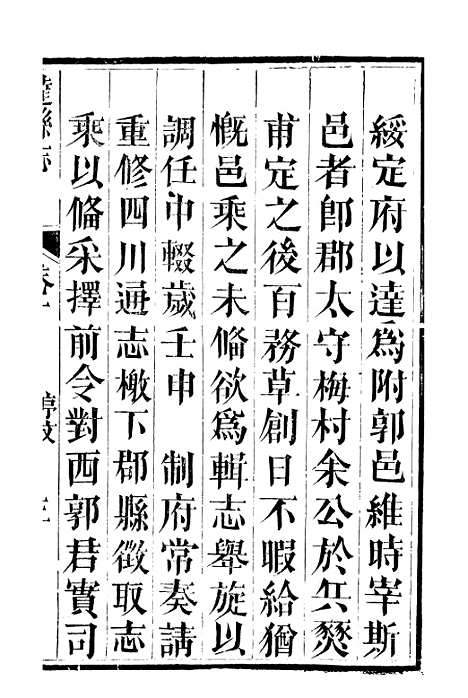 綏定府以達為附郭邑維時宰斯
邑者卽郡太守梅村余公於兵燹
甫定之後百務草創日不暇給猶
慨邑乘之未偹欲爲輯志舉旋以
調任中輟歲壬申　制府常奏請
重修四川通志檄下郡縣徵取志
乘以偹采擇前令對西郭君實司
達縣志
卷
三